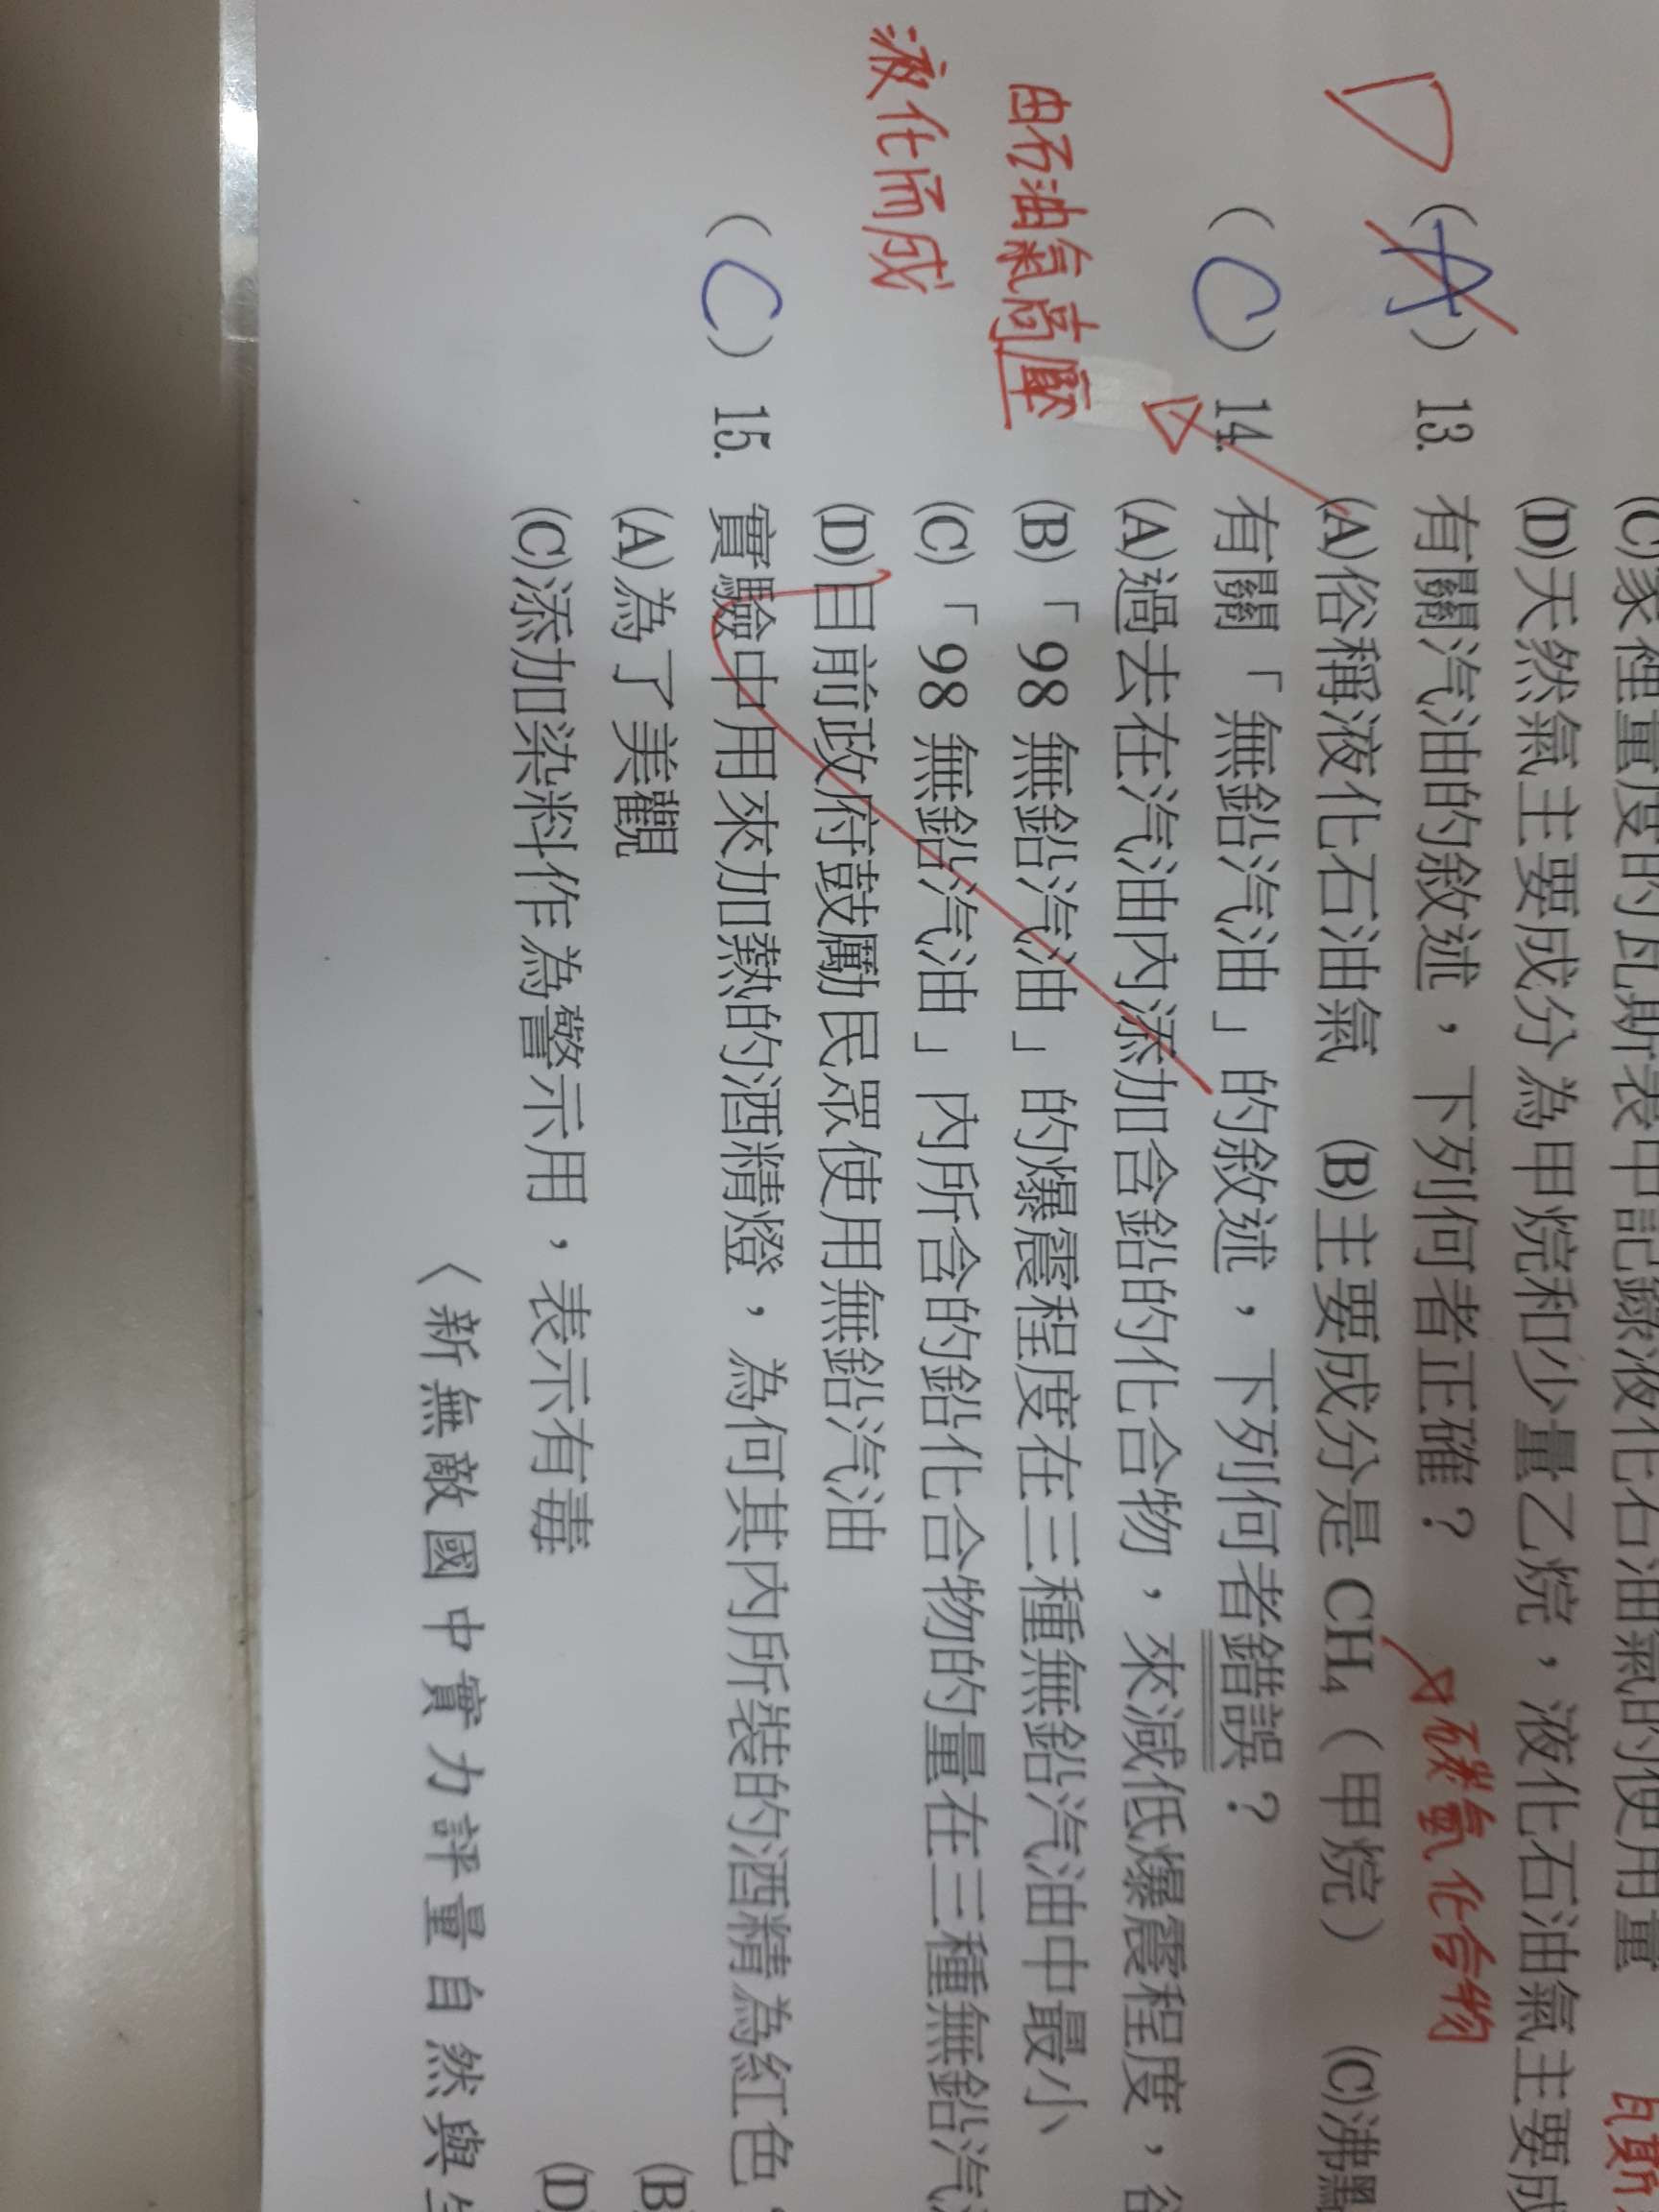 (C)家裡量度的瓦斯表中記錄液化石油氣的使用量
瓦斯
(D)天然氣主要成分為甲烷和少量乙烷，液化石油氣主要成
D (A) 13. 有關汽油的敘述，下列何者正確？
碳氫化合物
(A)俗稱液化石油氣 (B)主要成分是 CH₄（甲烷） (C)沸點
(C) 14. 有關「無鉛汽油」的敘述，下列何者錯誤？
(A)過去在汽油內添加含鉛的化合物，來減低爆震程度，
由石油氣高壓
液化而成
(B)「98 無鉛汽油」的爆震程度在三種無鉛汽油中最小
(C)「98 無鉛汽油」內所含的鉛化合物的量在三種無鉛汽
(D)目前政府鼓勵民眾使用無鉛汽油
(C) 15. 實驗中用來加熱的酒精燈，為何其內所裝的酒精為紅色
(A)為了美觀 (B
(C)添加染料作為警示用，表示有毒 (D
〈新無敵國中實力評量自然與